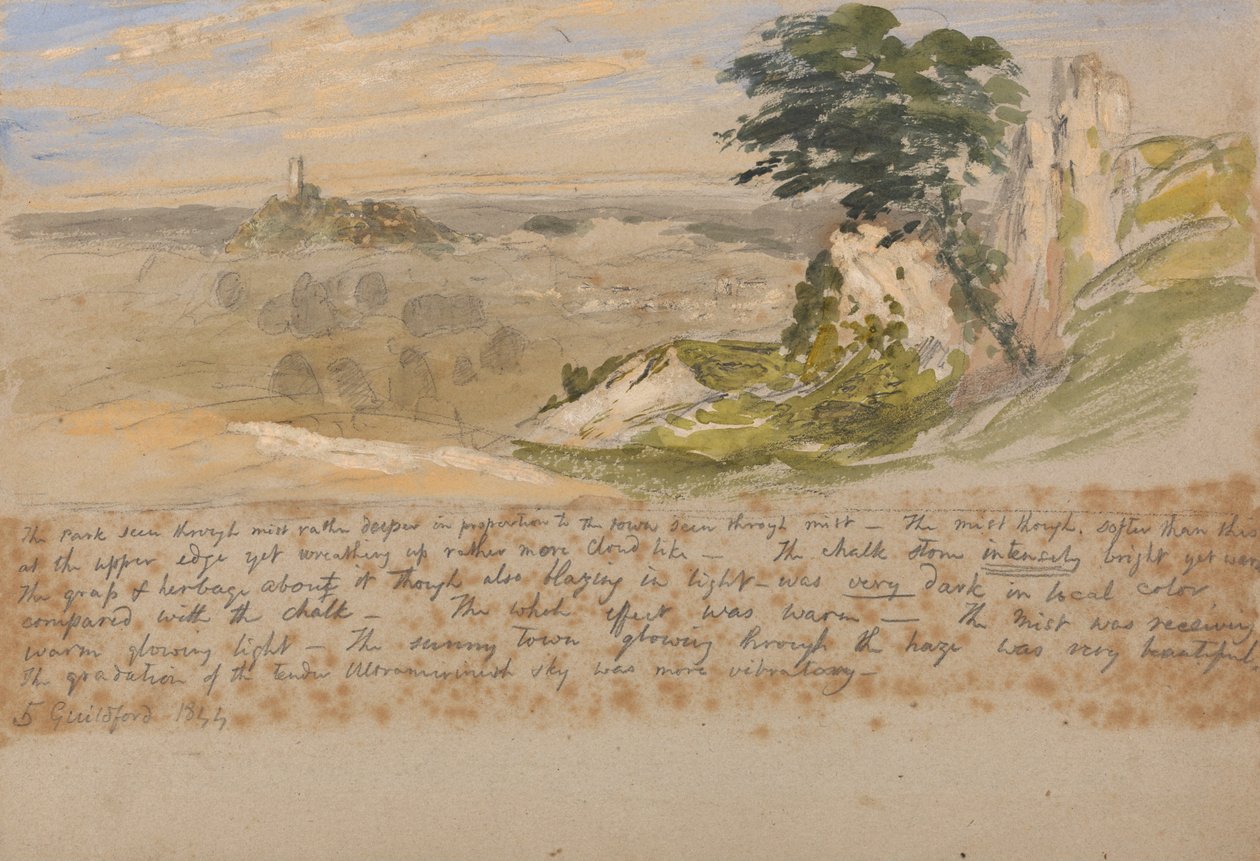 The Park seen through mist rather deeper in proportion to the town seen through mist — The mist though. softer than this
at the upper edge yet wreathing up rather more cloud like — The chalk stone intensely bright yet warm
The graſs & herbage about it though also blazing in light — was very dark in local color
compared with the chalk — The whole effect was warm — The Mist was receiving
warm glowing light — The sunny town glowing through the haze was very beautiful
The gradation of the tender Ultramarinish sky was more vibratory —
5 Guildford 1844